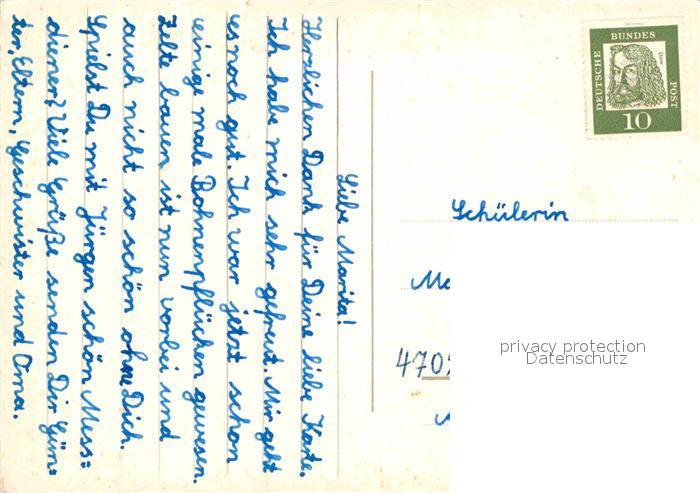 Liebe Marita!
Herzlichen Dank für Deine liebe Karte.
Ich habe mich sehr gefreut. Mir geht
es noch gut. Ich war jetzt schon
einige male Bohnenpflücken gewesen.
Zelte bauen ist nun vorbei und
auch nicht so schön ohne Dich.
Spielst Du mit Jürgen schön Mess=
diener? Viele Grüße senden Dir Gün=
ter, Eltern, Geschwister und Oma.
DEUTSCHE BUNDES POST
Dürer
10
Schülerin
470
privacy protection
Datenschutz